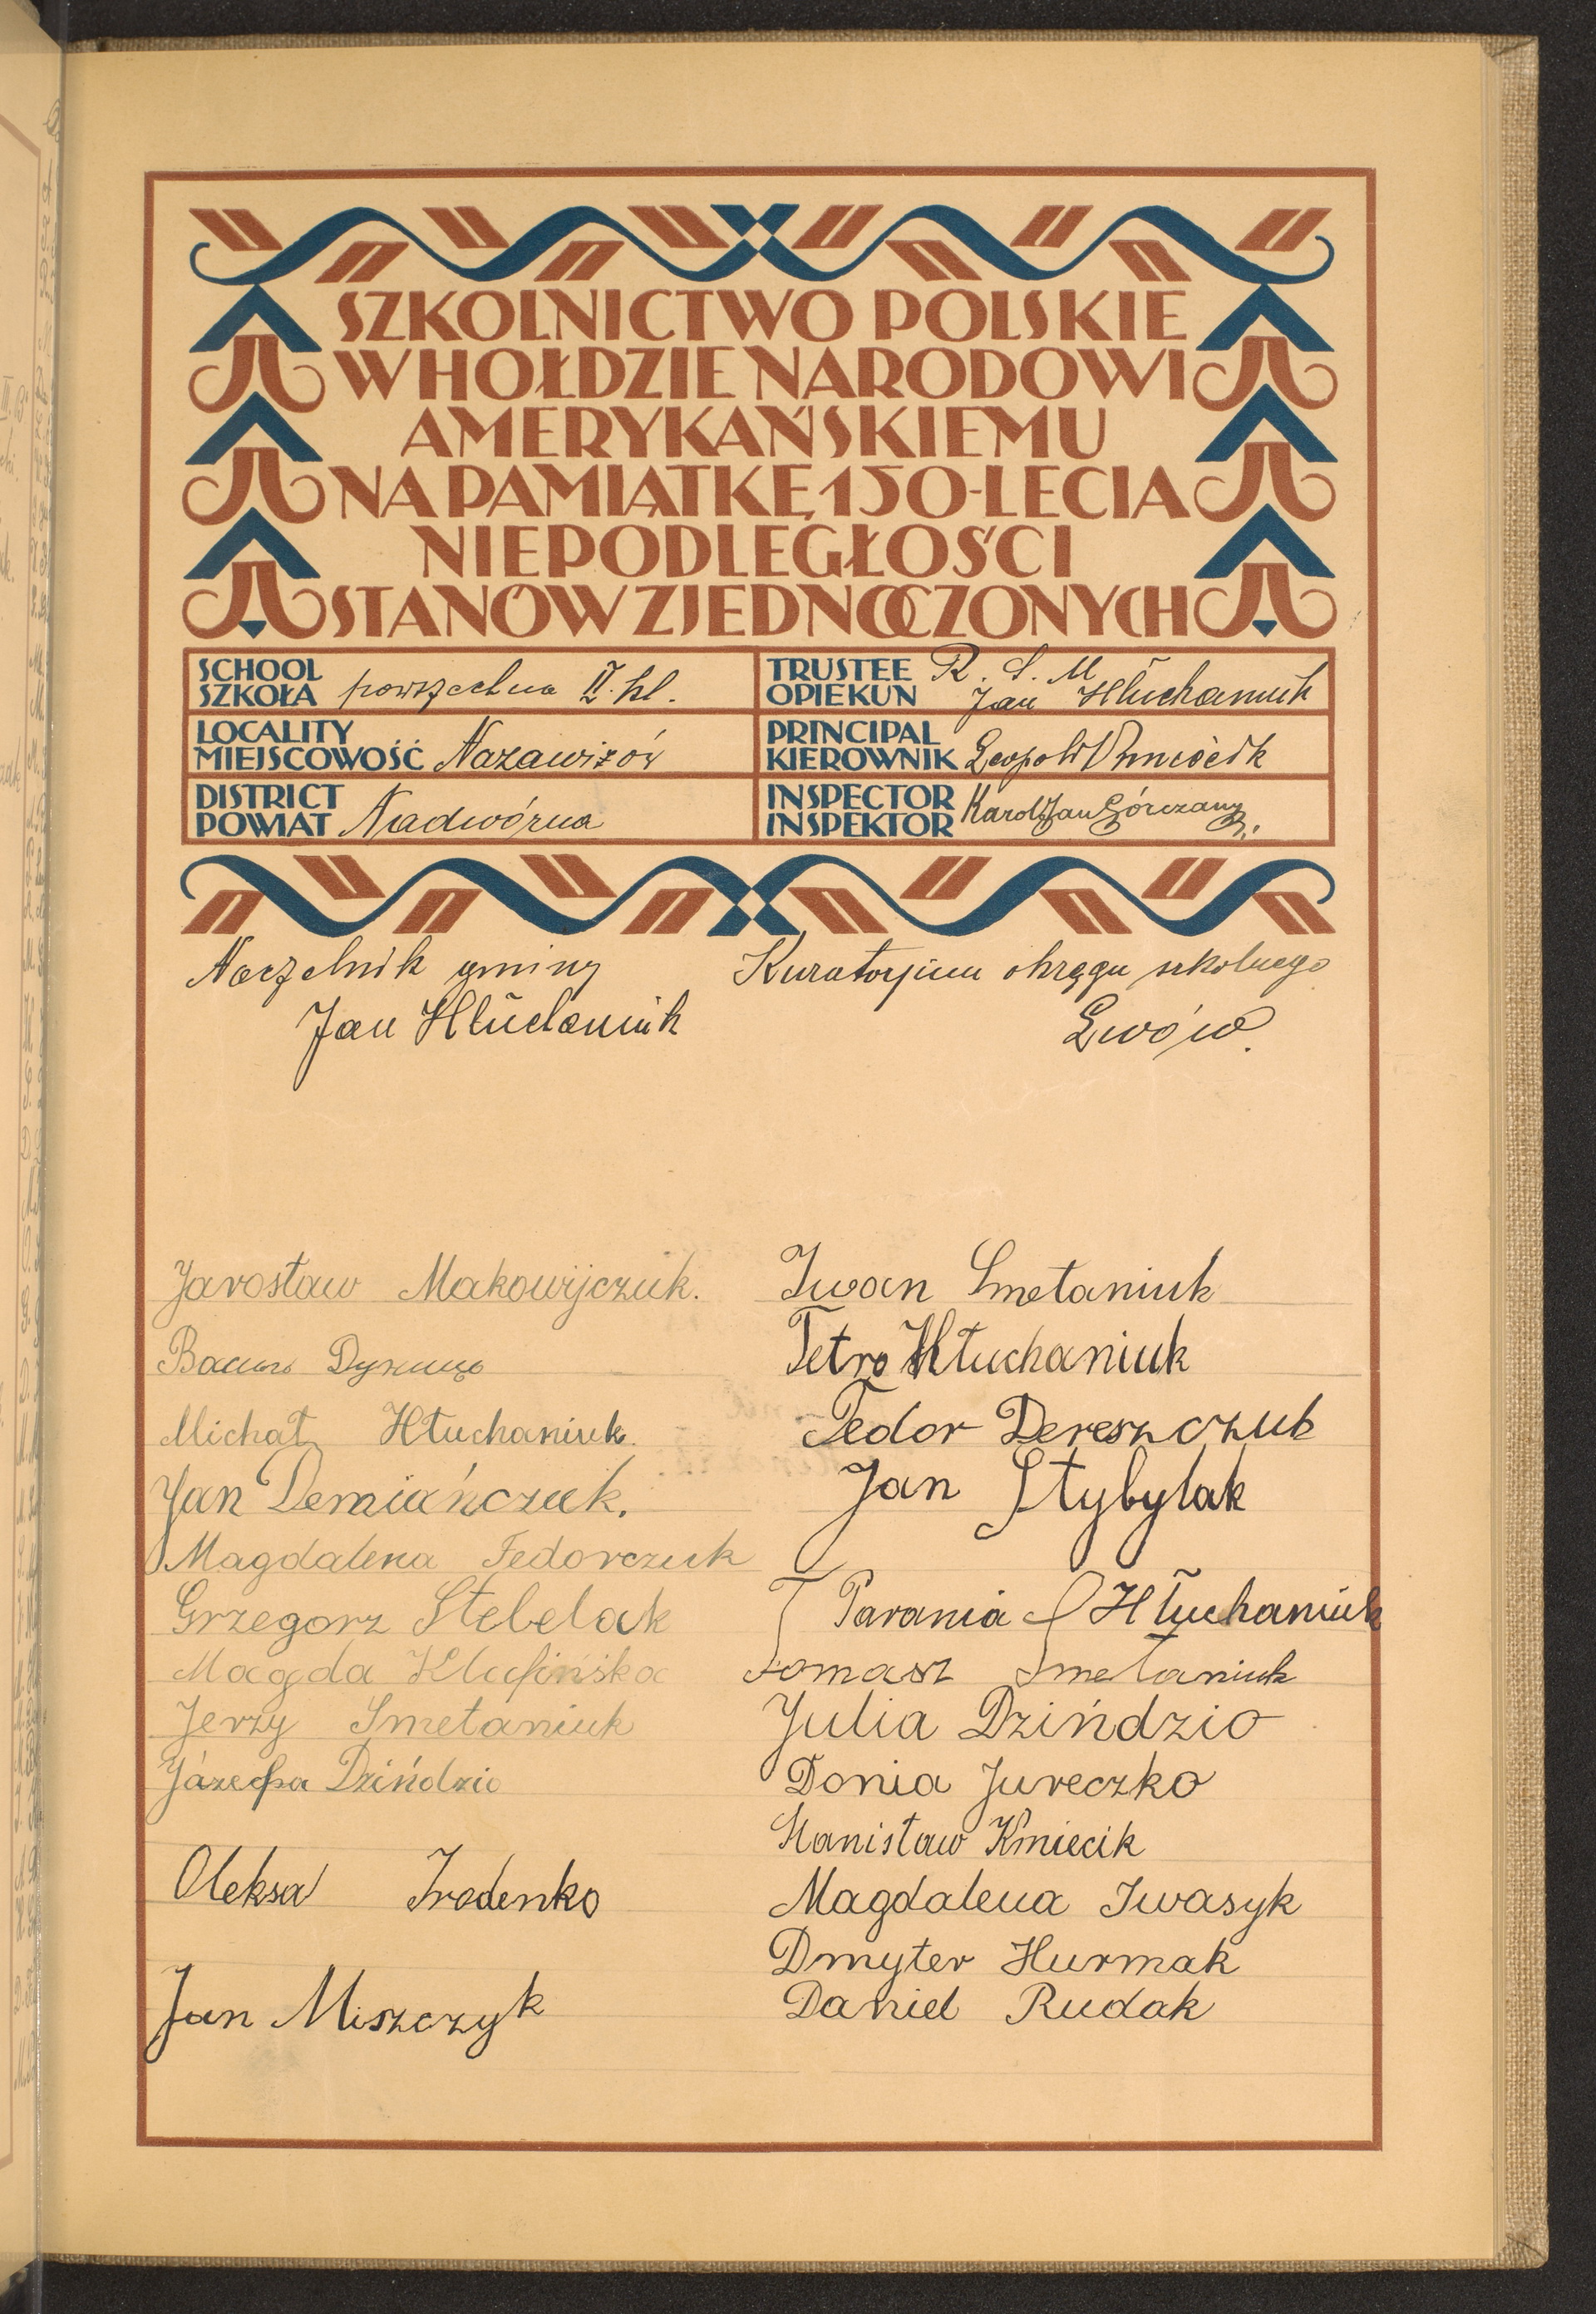 SZKOLNICTWO POLSKIE
W HOŁDZIE NARODOWI
AMERYKAŃSKIEMU
NA PAMIĄTKĘ 150-LECIA
NIEPODLEGŁOŚCI
STANÓW ZJEDNOCZONYCH
SCHOOL
SZKOŁA powszechna II. kl.
TRUSTEE R. S. M
OPIEKUN Jan Hłuchaniuk
LOCALITY
MIEJSCOWOŚĆ Nazawizów
PRINCIPAL
KIEROWNIK Leopold
DISTRICT
POWIAT Nadwórna
INSPECTOR
INSPEKTOR Karol Jan Górczany
Naczelnik gminy
Jan Hłuchaniuk
Kuratorjum okręgu szkolnego
Lwów.
Jarosław Makowijczuk.
Michał Hłuchaniuk.
Jan Demiańczuk.
Magdalena Fedorczuk
Grzegorz Stebelak
Magda
Jerzy Smetaniuk
Józefa Dzińdzio
Oleksa Iradenko
Jan Miszczyk
Iwan Smetaniuk
Petro Hłuchaniuk
Fedor Dereszczuk
Jan Stybylak
Parania Hłuchaniuk
Tomasz Smetaniuk
Julia Dzińdzio
Donia Jureczko
Stanisław Kmiecik
Magdalena Iwasyk
Dmyter Hurmak
Daniel Rudak